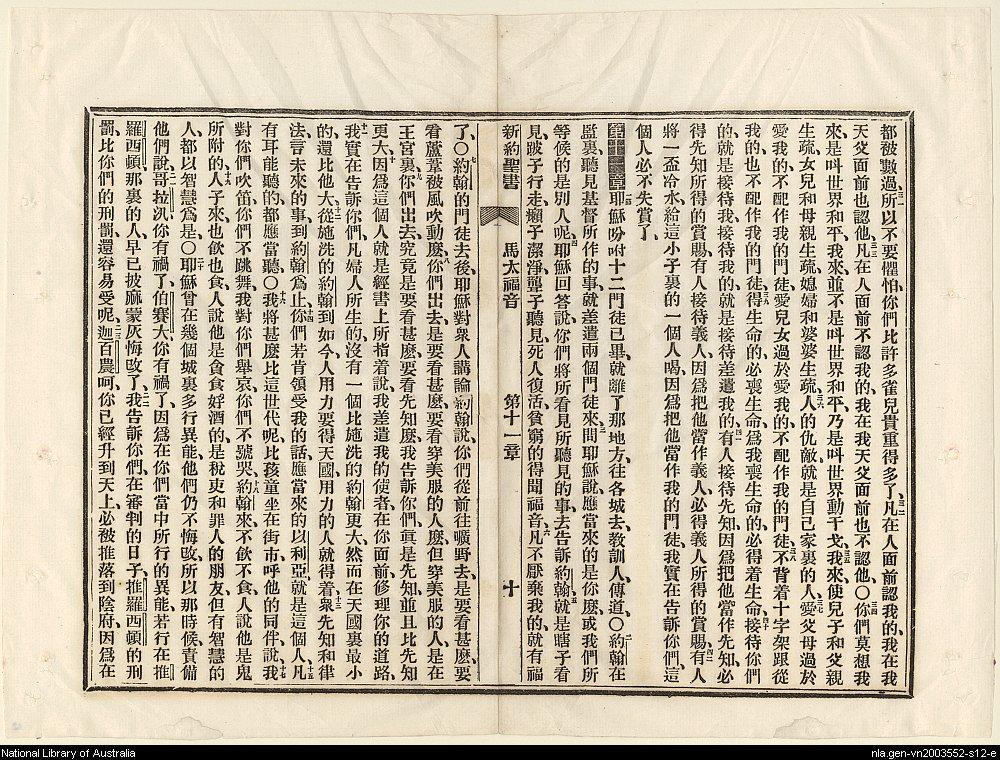 都被數過、所以不要懼怕、你們比許多雀兒貴重得多了、三二凡在人面前認我的、我在我
天父面前也認他、三三凡在人面前不認我的、我在我天父面前也不認他、〇三四你們莫想我
來、是叫世界和平、我來、並不是叫世界和平、乃是叫世界動干戈、三五我來、使兒子和父親
生疏、女兒和母親生疏、媳婦和婆婆生疏、三六人的仇敵、就是自己家裏的人、三七愛父母過於
愛我的、不配作我的門徒、愛兒女過於愛我的、不配作我的門徒、三八不背着十字架跟從
我的、也不配作我的門徒、三九得生命的、必喪生命、爲我喪生命的、必得着生命、四十接待你們
的、就是接待我、接待我的、就是接待差遣我的、四一有人接待先知、因爲把他當作先知、必
得先知所得的賞賜、有人接待義人、因爲把他當作義人、必得義人所得的賞賜、四二有人
將一盃冷水給這小子裏的一個人喝、因爲把他當作我的門徒、我實在告訴你們、這
個人必不失賞了、
第十一章 耶穌吩咐十二門徒已畢、就離了那地方、往各城去、教訓人、傳道、〇二約翰在
監裏、聽見基督所作的事、就差遣兩個門徒來、三問耶穌說、應當來的是你麽、或我們所
等候的是別人呢、四耶穌回答說、你們將所看見所聽見的事、去告訴約翰、五就是瞎子看
見、跛子行走、癩子潔淨、聾子聽見、死人復活、貧窮的得聞福音、六凡不厭棄我的、就有福
新約聖書 馬太福音 第十一章 十
了、〇七約翰的門徒去後、耶穌對衆人講論約翰說、你們從前往曠野去、是要看甚麽、要
看蘆葦被風吹動麽、八你們出去、是要看甚麽、要看穿美服的人麽、但穿美服的人、是在
王宮裏、九你們出去、究竟是要看甚麽、要看先知麽、我告訴你們、眞是先知、並且比先知
更大、十因爲這個人、就是經書上所指着說、我差遣我的使者、在你面前修理你的道路、
十一我實在告訴你們、凡婦人所生的、沒有一個比施洗的約翰更大、然而在天國裏最小
的、還比他大、十二從施洗的約翰到如今、人用力要得天國、用力的人就得着、十三衆先知和律
法言未來的事、到約翰爲止、十四你們若肯領受我的話、應當來的以利亞、就是這個人、十五凡
有耳能聽的、都應當聽、〇十六我將甚麽比這世代呢、比孩童坐在街市、呼他的同伴說、十七我
對你們吹笛、你們不跳舞、我對你們舉哀、你們不號哭、十八約翰來、不飲不食、人說他是鬼
所附的、十九人子來、也飲也食、人說他是貪食好酒的、是稅吏和罪人的朋友、但有智慧的
人、都以智慧爲是、〇二十耶穌曾在幾個城裏多行異能、他們仍不悔改、所以那時候、責備
他們說、二一哥拉汛、你有禍了、伯賽大、你有禍了、因爲在你們當中所行的異能、若行在推
羅西頓、那裏的人、早已披麻蒙灰悔改了、二二我告訴你們、在審判的日子、推羅西頓的刑
罰、比你們的刑罰還容易受呢、二三迦百農呵、你已經升到天上、必被推落到陰府、因爲在
National Library of Australia
nla.gen-vn2003552-s12-e